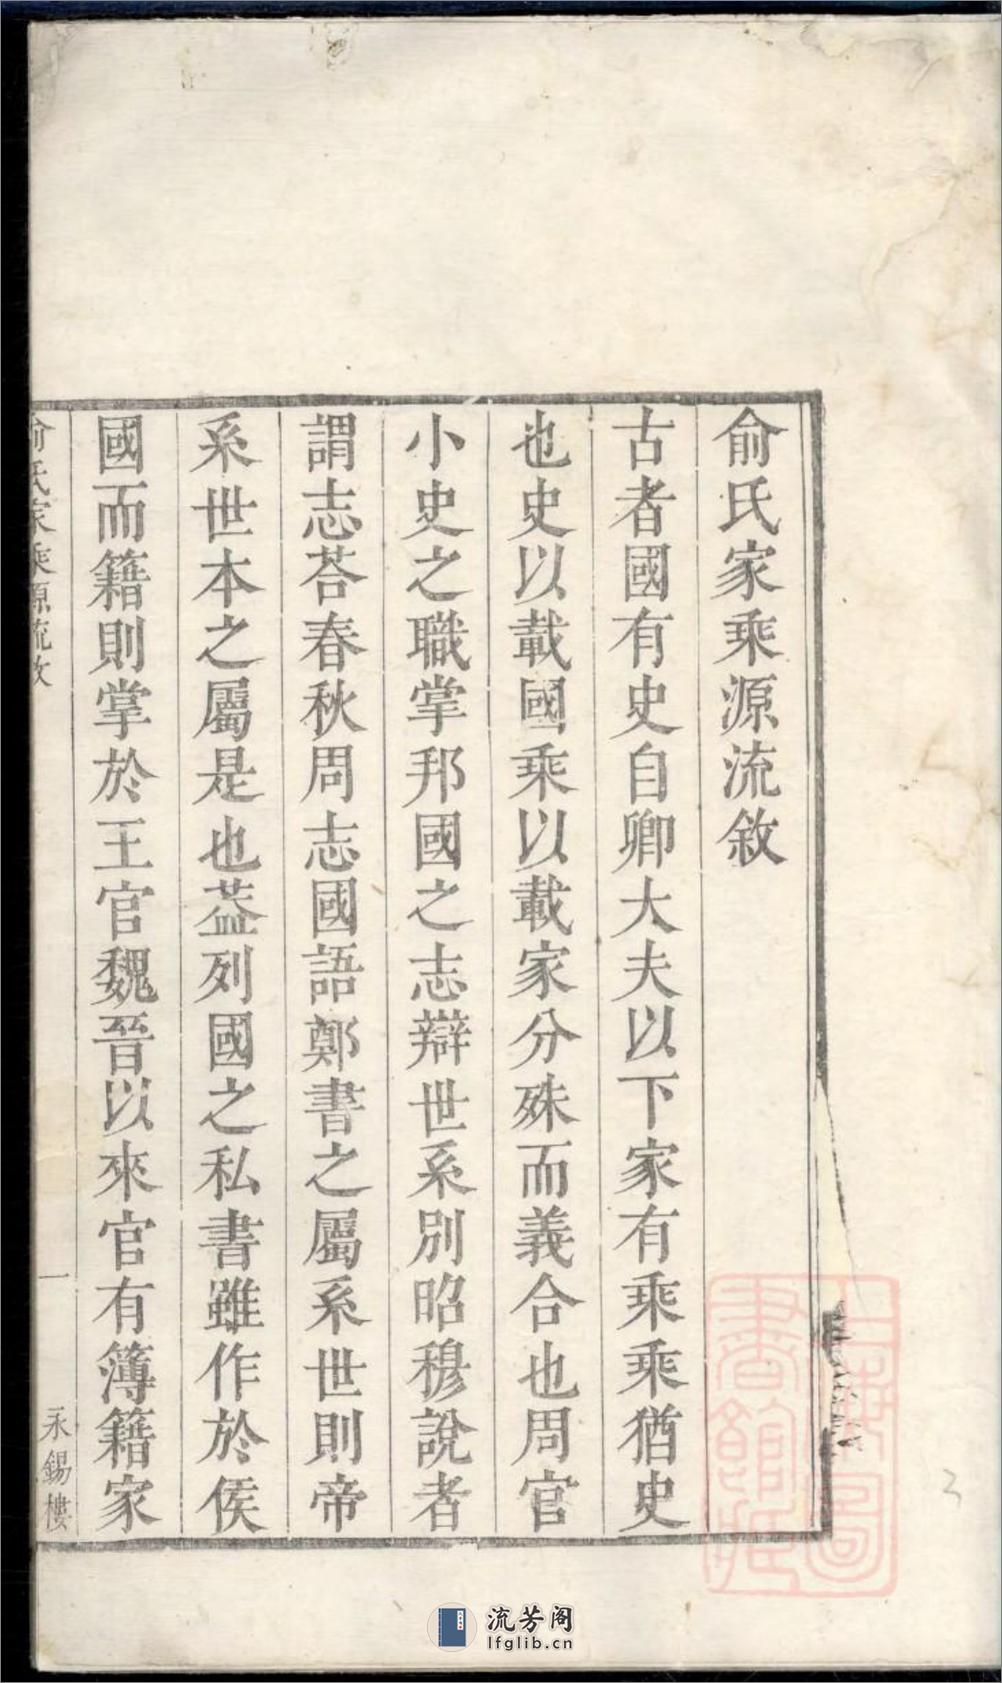 俞氏家乘源流敘
古者國有史自卿大夫以下家有乘乘猶史
也史以載國乘以載家分殊而義合也周官
小史之職掌邦國之志辯世系別昭穆說者
謂志荅春秋周志國語鄭書之屬系世則帝
系世本之屬是也葢列國之私書雖作於侯
國而籍則掌於王官魏晉以來官有簿籍家
俞氏家乘源流敘
一
永錫樓
上海圖
書館藏
3
流芳阁
lfglib.cn